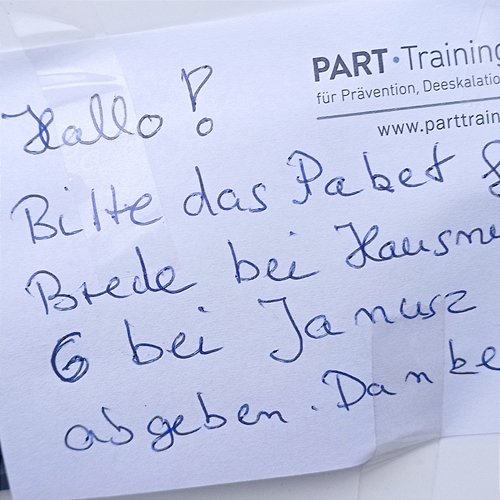 PART·Training
für Prävention, Deeskalatio
www.parttrain
Hallo!
Bitte das Paket f
Brede bei Hausnu
6 bei Janusz
abgeben. Danke